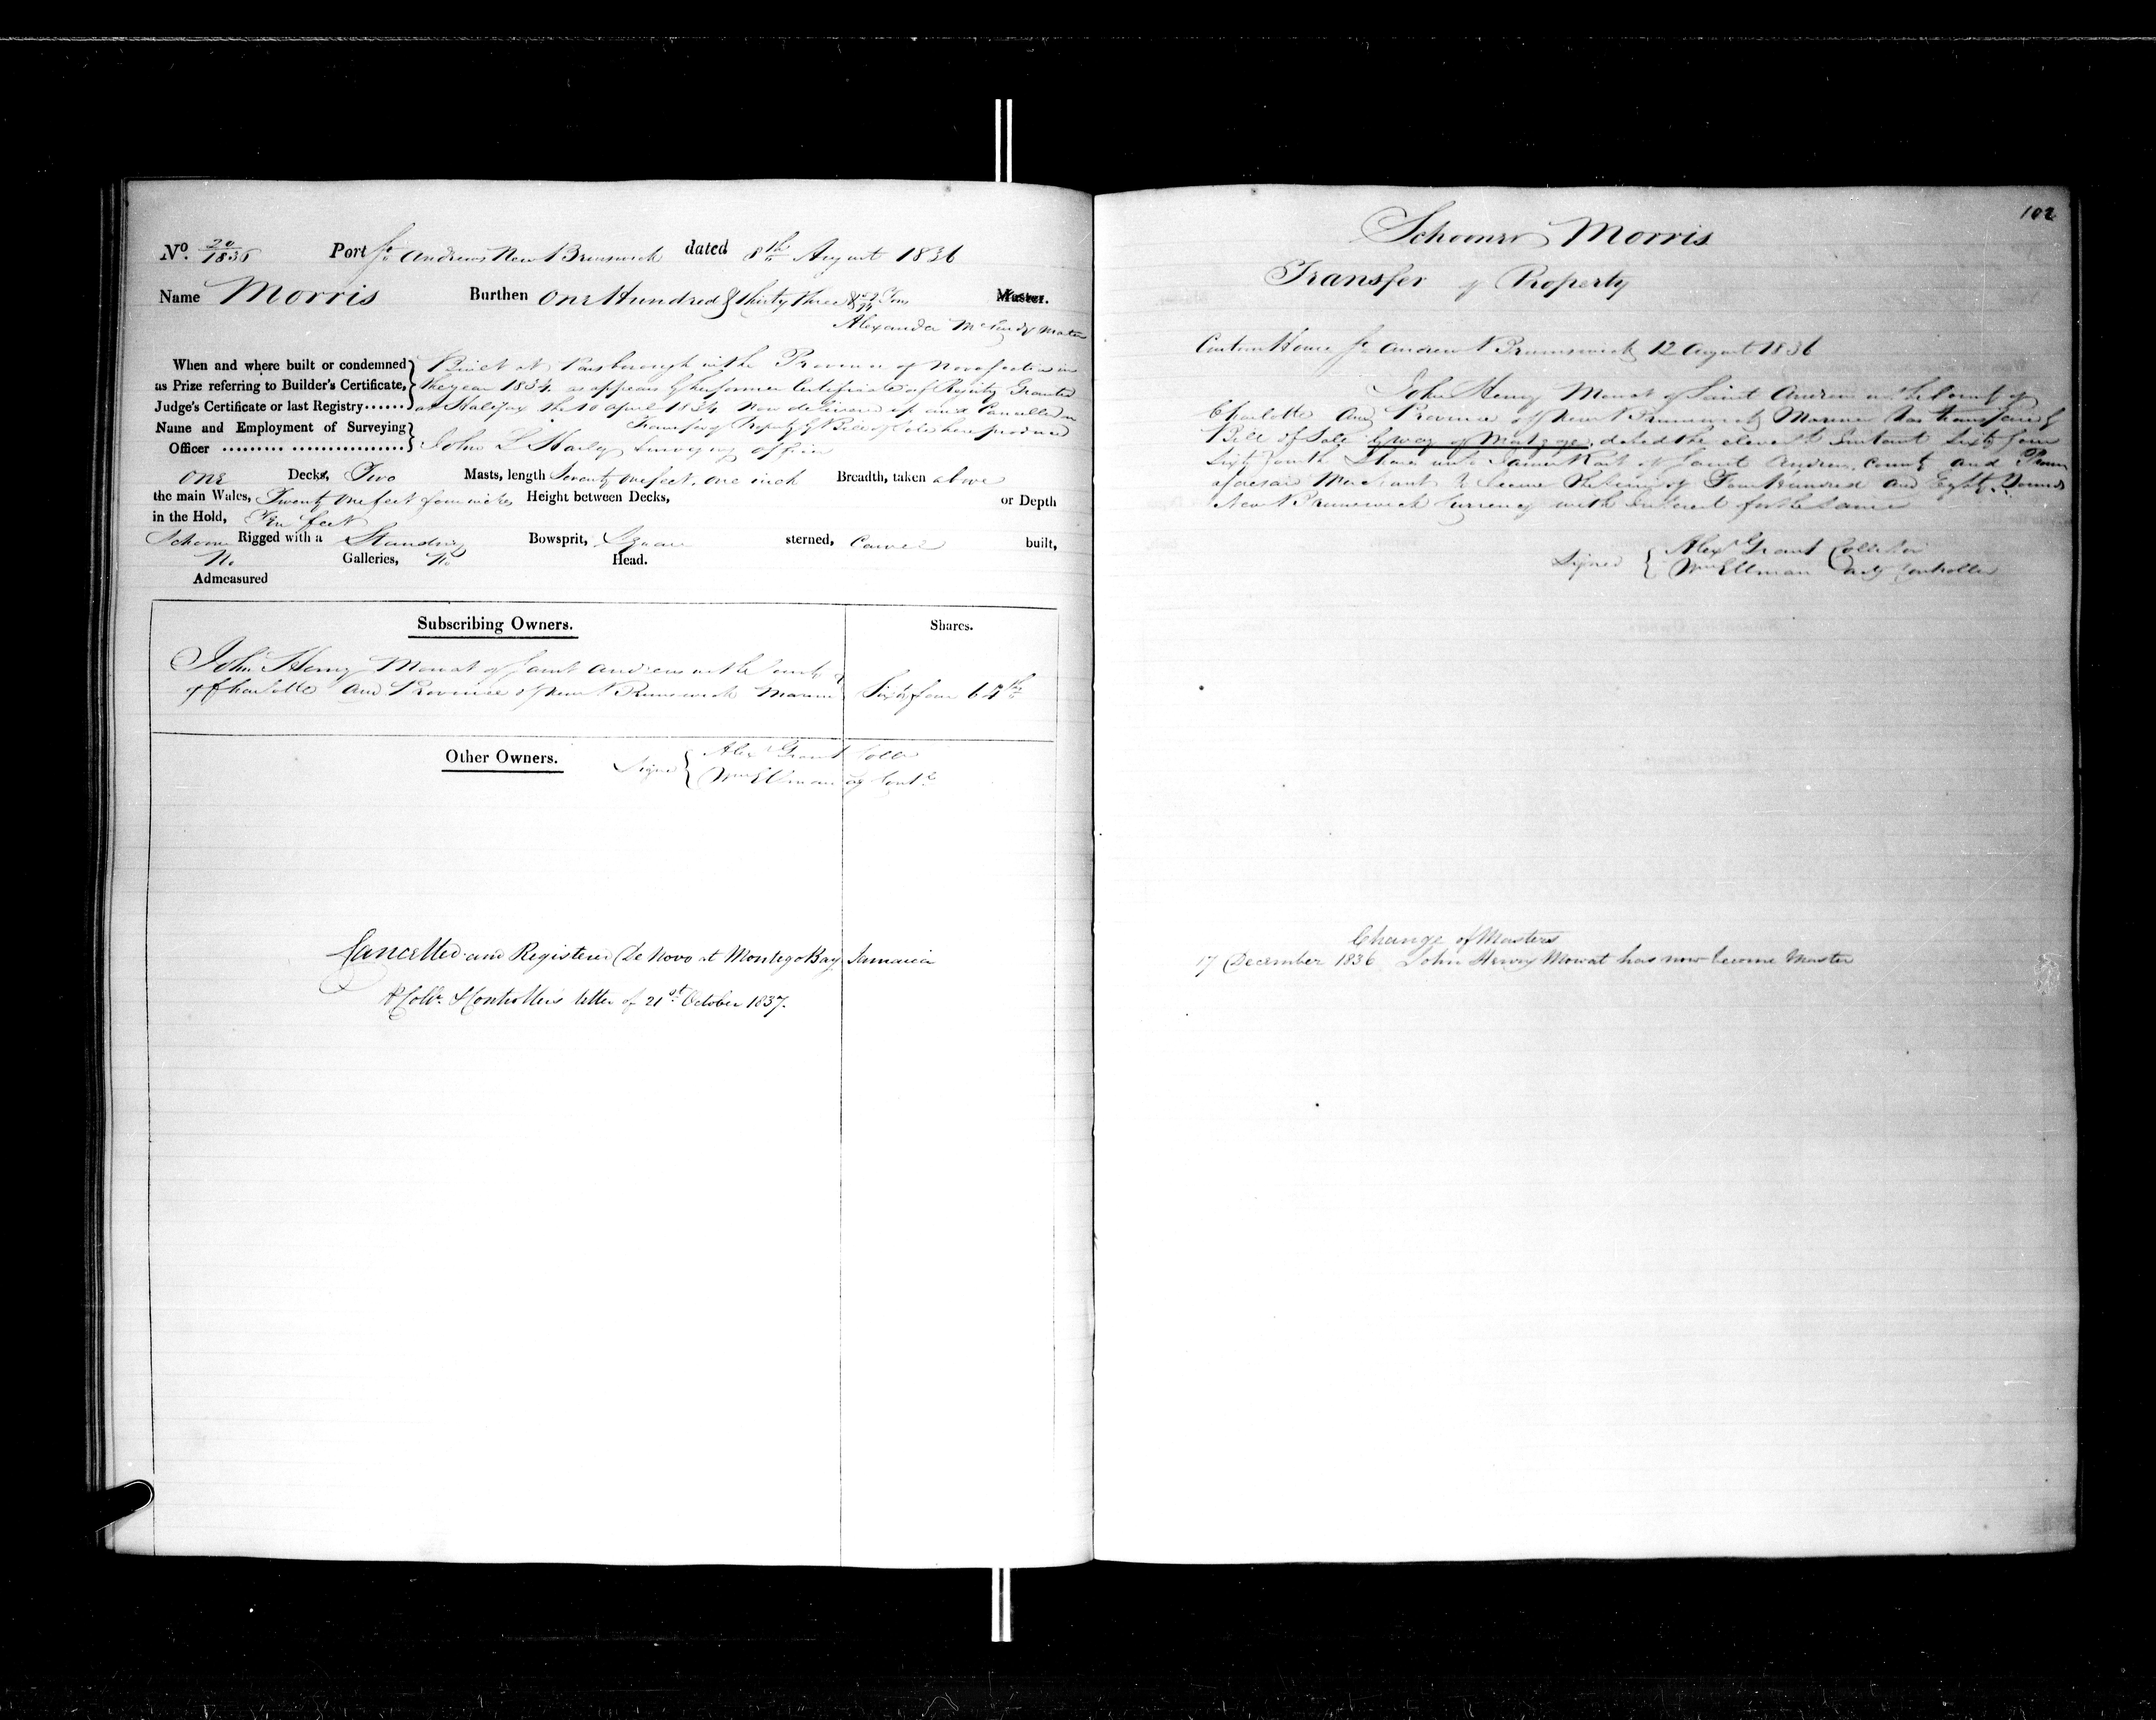 No. 20/1836 Port St. Andrews New Brunswick dated 8th August 1836
Name Morris Burthen One Hundred & thirty three & Tons Master.
Alexander Master
When and where built or condemned
as Prize referring to Builder's Certificate,
Judge's Certificate or last Registry
Built at Parsborough in the Province of Nova Scotia in
the year 1834 as appears by her former Certificate of Registry Granted
at Halifax the 10 April 1834 Now delivered up and Cancelled on
Transfer of Property by Bill of Sale here produced
Name and Employment of Surveying
Officer
John L Surveying officer
One Decks, Two Masts, length Seventy one feet, one inch Breadth, taken above
the main Wales, Twenty one feet four inches Height between Decks, or Depth
in the Hold, Ten feet
Schooner Rigged with a Standing Bowsprit, Square sterned, Carvel built,
No Galleries, No Head.
Admeasured
Subscribing Owners. Shares.
John Henry Mowat of Saint Andrews in the County
of Charlotte and Province of New Brunswick Mariner Sixty four 64ths
Other Owners.
Signed Alexr Grant Collr
Wm Ellman Contr
Cancelled and Registered De Novo at Montego Bay Jamaica
Collr. & Controllers letter of 21st October 1837.
102
Schooner Morris
Transfer of Property
Custom House St. Andrews N Brunswick 12 August 1836
John Henry Mowat of Saint Andrews in the County of
Charlotte and Province of New Brunswick Mariner has transferred by
Bill of Sale by way of Mortgage, dated the eleventh Instant Sixty four
Sixty fourth Shares unto James Rait of Saint Andrews, County and Province
aforesaid Merchant to Secure the Sum of Four Hundred and Eighty Pounds
New Brunswick Currency with Interest for the Same
Signed Alexr Grant Collector
Wm Ellman Actg Controller
Change of Masters
17 December 1836 John Henry Mowat has now become Master